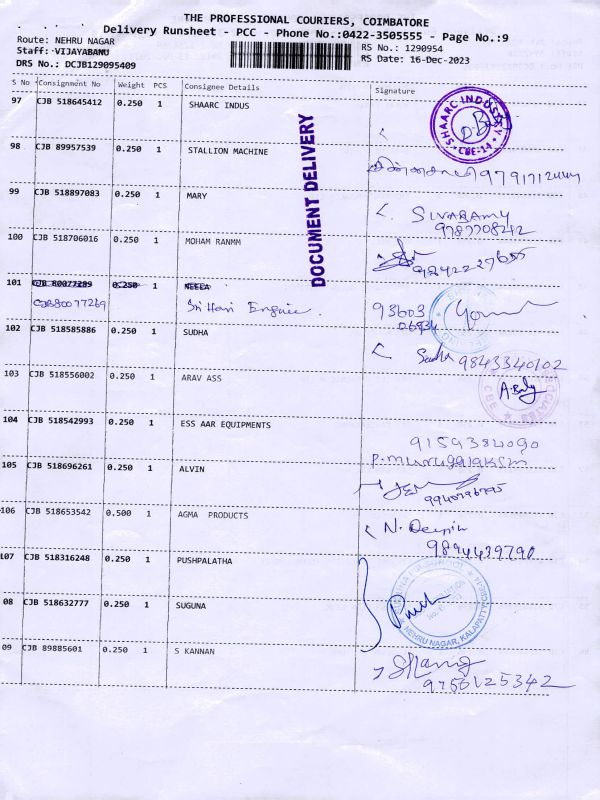 THE PROFESSIONAL COURIERS, COIMBATORE
Delivery Runsheet - PCC - Phone No.:0422-3505555 - Page No.:9
Route: NEHRU NAGAR
RS No.: 1290954
Staff: VIJAYABANU
RS Date: 16-Dec-2023
DRS No.: DCJB129095409
S No Consignment No Weight PCS Consignee Details Signature
97 CJB 518645412 0.250 1 SHAARC INDUS
SHAARC INDUSTRY CBE-14
98 CJB 89957539 0.250 1 STALLION MACHINE
DOCUMENT DELIVERY
99 CJB 518897083 0.250 1 MARY
SIVARAMY
9787708242
100 CJB 518706016 0.250 1 MOHAM RANMM
9842227655
101 CJB 80077289 0.250 NEELA
CJB80077269 Sri Hari Engine. 93603
102 CJB 518585886 0.250 1 SUDHA
Sudha 9843340102
103 CJB 518556002 0.250 1 ARAV ASS
CBE
104 CJB 518542993 0.250 1 ESS AAR EQUIPMENTS
9159384090
105 CJB 518696261 0.250 1 ALVIN
106 CJB 518653542 0.500 1 AGMA PRODUCTS
9894439790
107 CJB 518316248 0.250 1 PUSHPALATHA
NEHRU NAGAR, KALAPATTY
08 CJB 518632777 0.250 1 SUGUNA
09 CJB 89885601 0.250 1 S KANNAN
9750125342